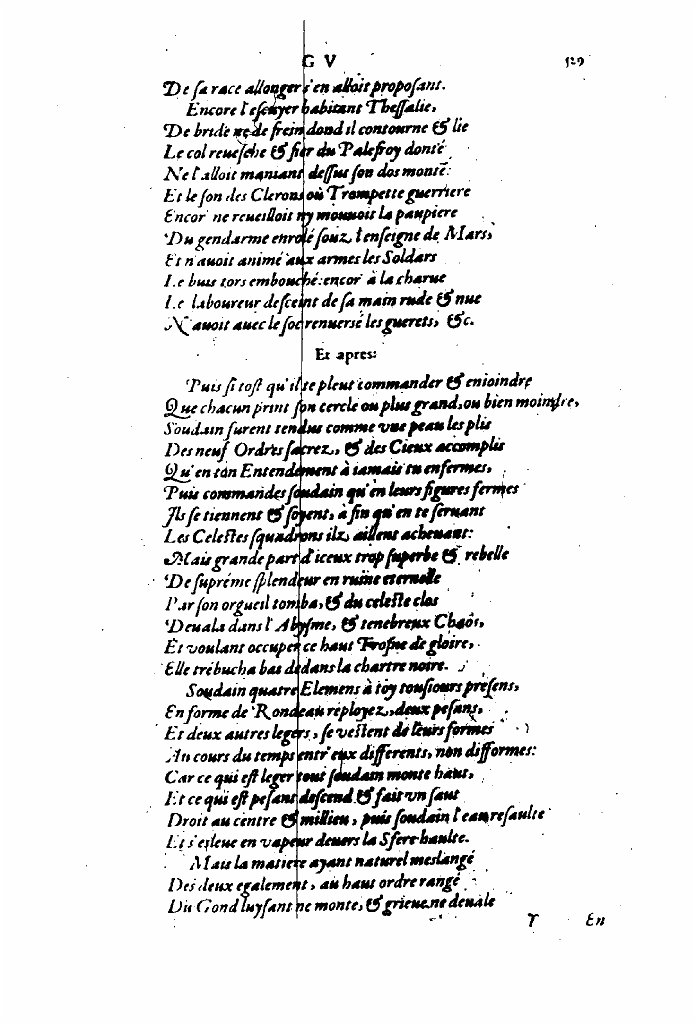 G V 529
De sa race allonger s'en alloit proposant.
Encore l'escuyer habitant Thessalie,
De bride ne de frein dond il contourne & lie
Le col reuesche & fier du Palefroy donté
Ne l'alloit maniant dessus son dos monté:
Et le son des Clerons où Trompette guerriere
Encor' ne reueilloit ny mouuoit la paupiere
Du gendarme enrolé souz l'enseigne de Mars,
Et n'auoit animé aux armes les Soldars
Le buis tors embouché: encor' à la charue
Le laboureur desceint de sa main rude & nue
N'auoit auec le soc renuersé les guerets, &c.
Et apres:
Puis si tost qu'il te pleut commander & enioindre
Que chacun print son cercle ou plus grand, ou bien moindre,
Soudain furent tendus comme vne peau les plis
Des neuf Ordres sacrez, & des Cieux accomplis
Qu'en ton Entendement à iamais tu enfermes,
Puis commandes soudain qu'en leurs figures fermes
Ils se tiennent & soyent, à fin qu'en te seruant
Les Celestes squadrons ilz aillent acheuant:
Mais grande part d'iceux trop superbe & rebelle
De supréme splendeur en ruine eternelle
Par son orgueil tomba, & du celeste clos
Deuala dans l'Abysme, & tenebreux Chaôs,
Et voulant occuper ce haut Trosne de gloire,
Elle trébucha bas dedans la chartre noire.
Soudain quatre Elemens à toy tousiours presens,
En forme de Rondeau réployez, deux pesans,
Et deux autres legers, se vestent de leurs formes
Au cours du temps entr'eux differents, non difformes:
Car ce qui est leger tout soudain monte haut,
Et ce qui est pesant descend & fait vn saut
Droit au centre & millieu, puis soudain l'eau resaulte
Et s'esleue en vapeur deuers la Sfere haulte.
Mais la matiere ayant naturel meslangé
Des deux egalement, au haut ordre rangé
Du Gond luysant ne monte, & grieue ne deuale
Y En